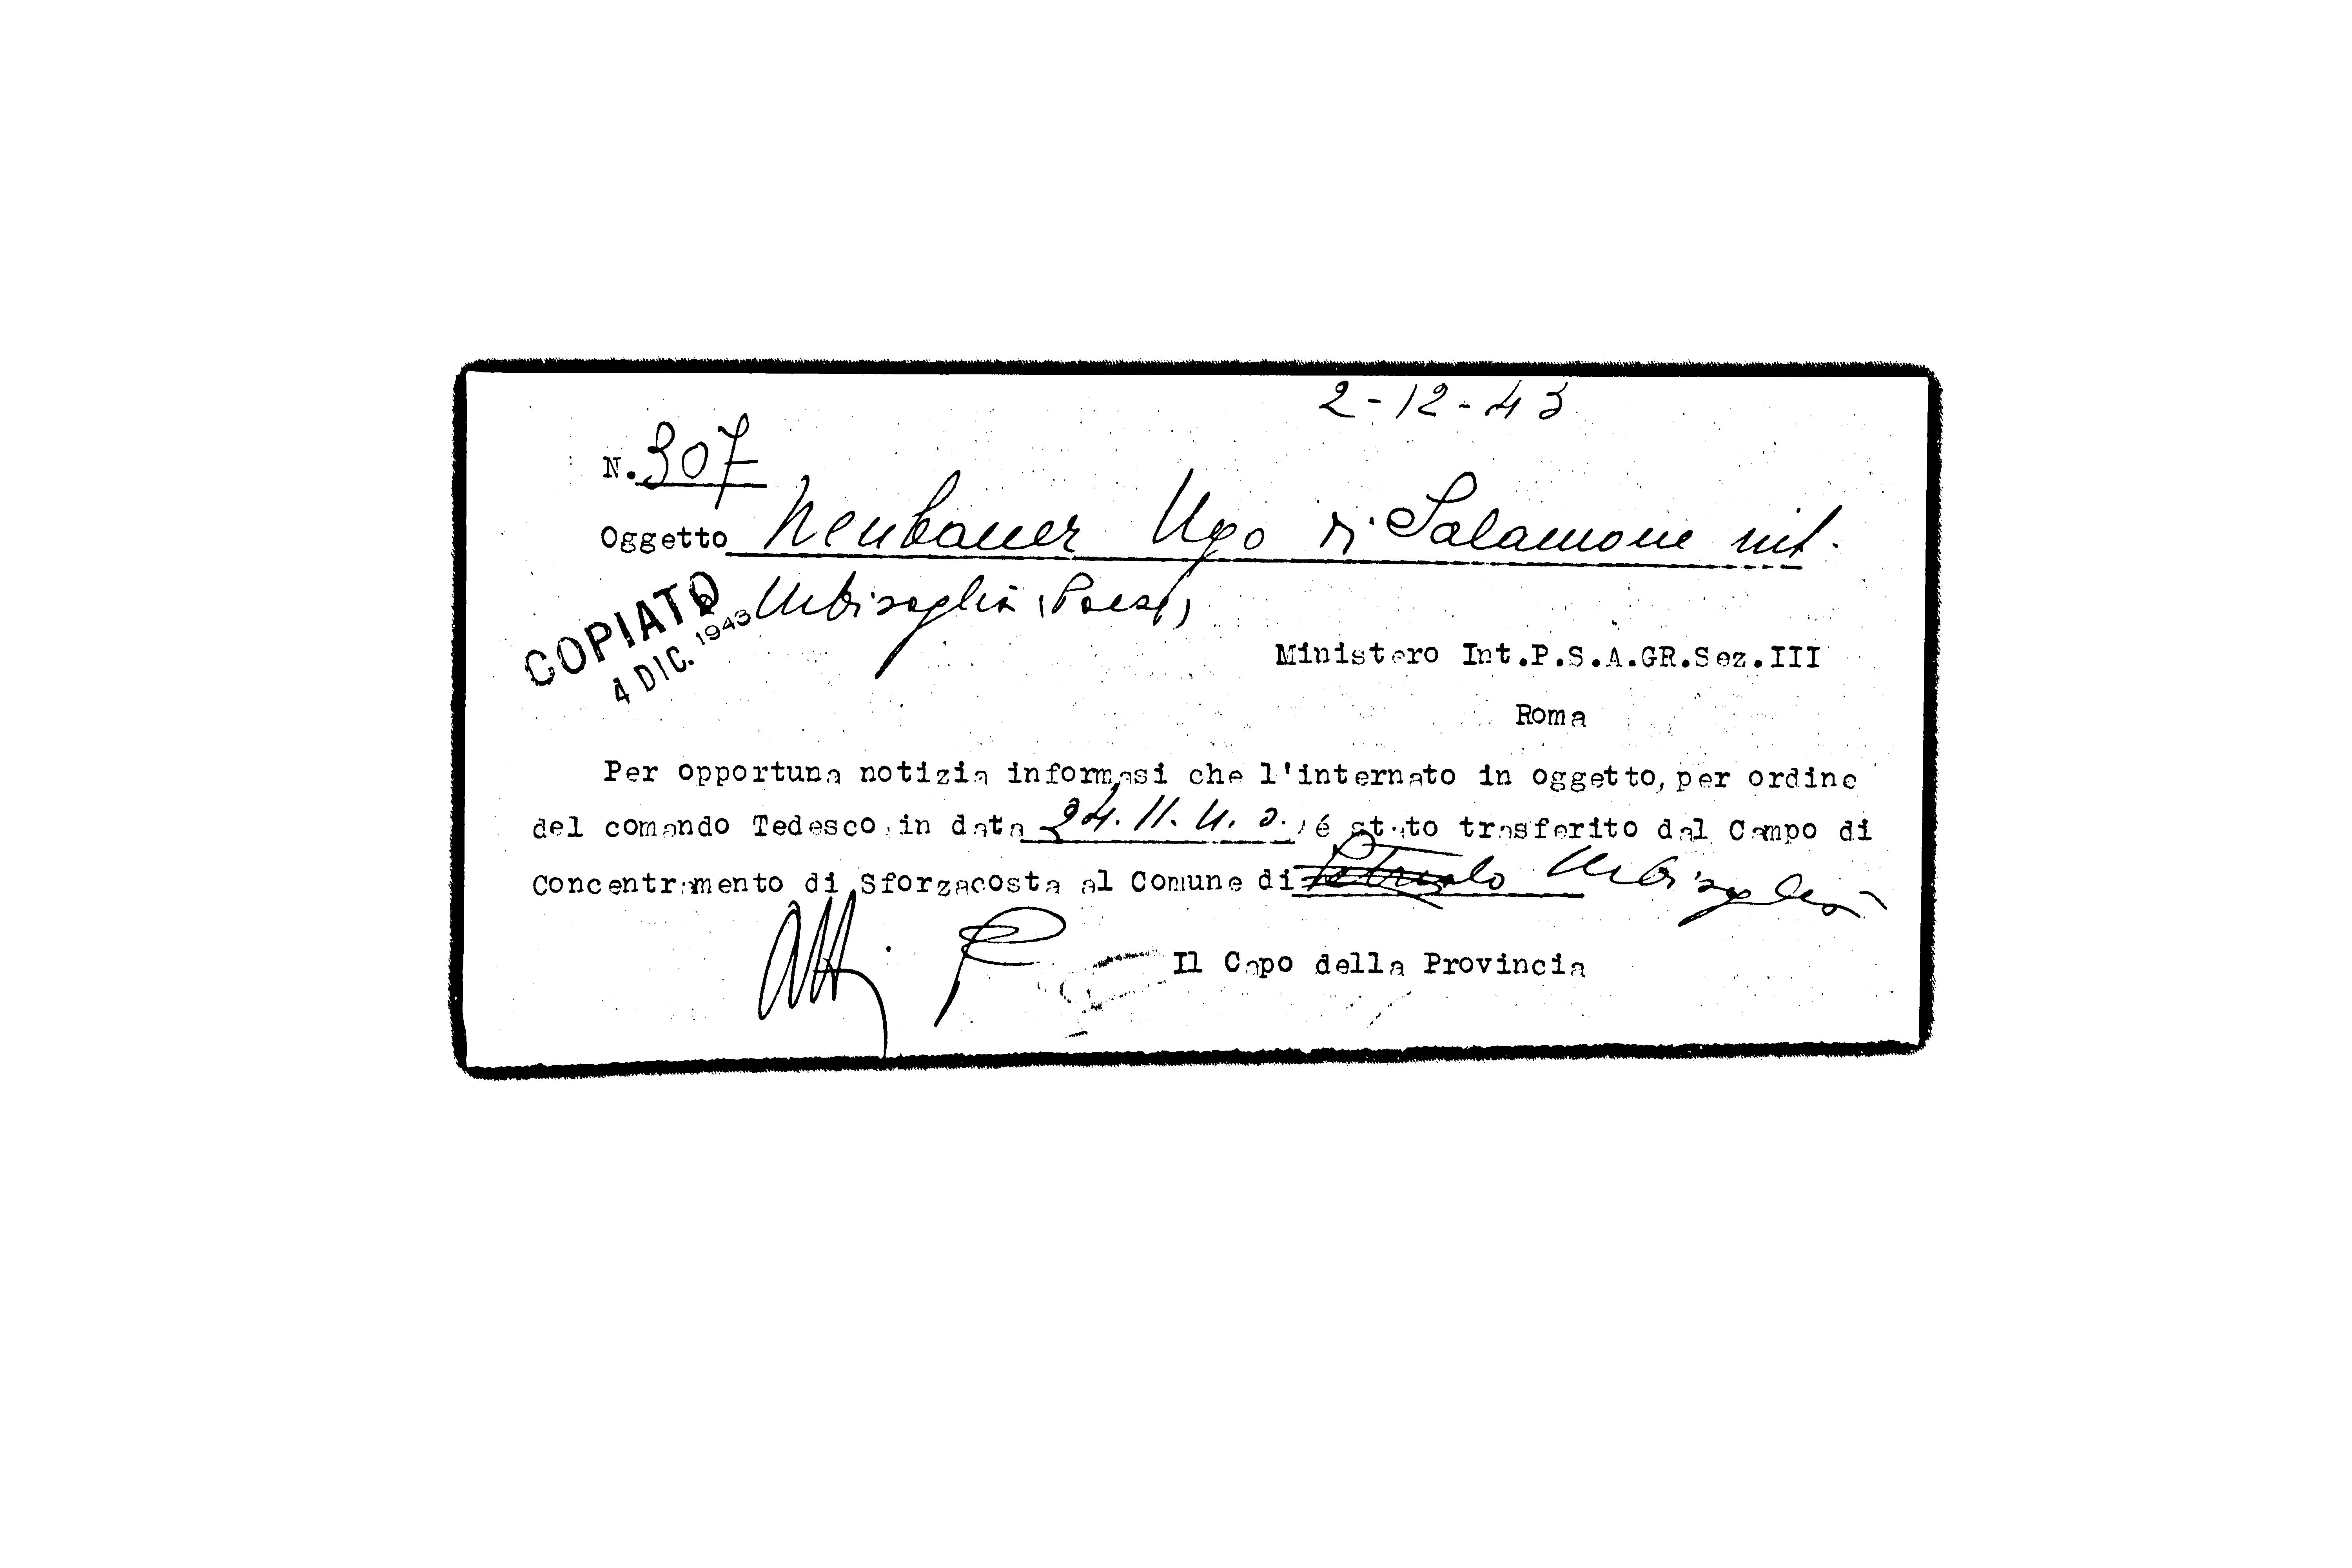 2-12-43
N. 307
Oggetto Neubauer Ugo di Salamone int.
Urbisaglia (Paese)
COPIATO
4 DIC. 1943
Ministero Int.P.S.A.GR.Sez.III
Roma
Per opportuna notizia informasi che l'internato in oggetto, per ordine
del comando Tedesco, in data 24.11.u.s., é stato trasferito dal Campo di
Concentramento di Sforzacosta al Comune di Petriolo Urbisaglia
Atti
Il Capo della Provincia